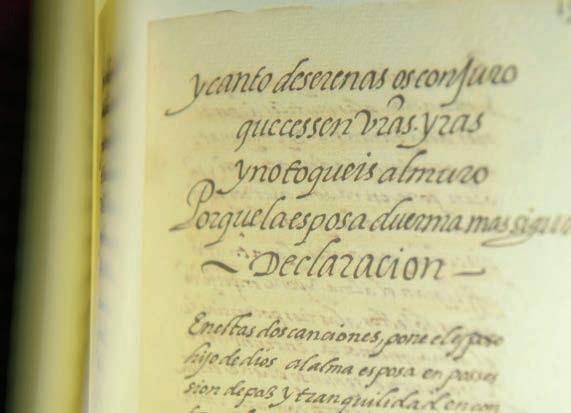 y canto de serenas os conjuro
que cessen vr̃as yras
y no toqueis al muro
Porque la esposa duerma mas sigur
~ Declaracion ~
En estas dos canciones, pone el esposo
hijo de dios al alma esposa en posses
sion de paz y tranquilidad en con